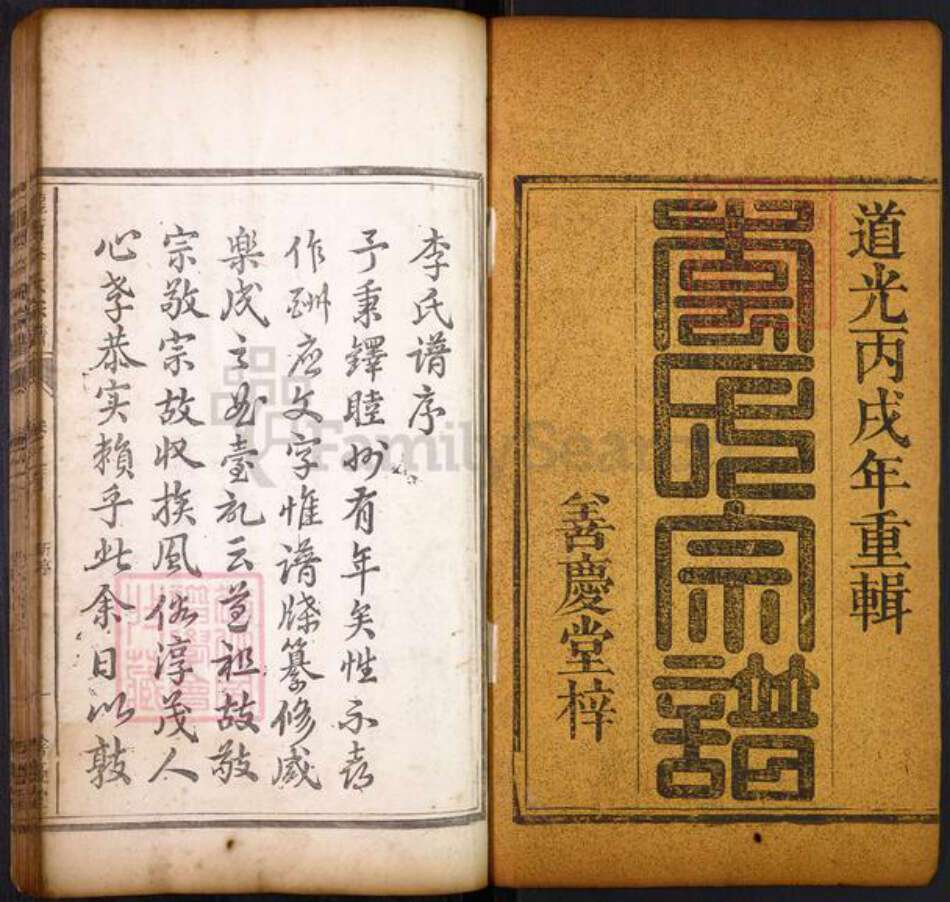 道光丙戌年重輯
李氏宗譜
全善慶堂梓
李氏谱序
予秉鐸睦州有年矣性不喜
作酬应文字惟谱牒纂修咸
樂成之曲臺記云尊祖故敬
宗敬宗故収族風俗淳茂人
心孝恭实頼乎此余日以敦
FamilySearch